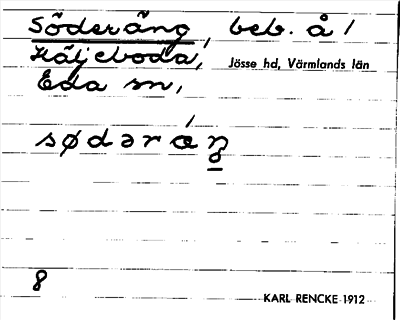 Söderäng, beb. å 1
Häljeboda,
Jösse hd, Värmlands län
Eda sn,
sødəræ´ŋ
8
KARL RENCKE 1912